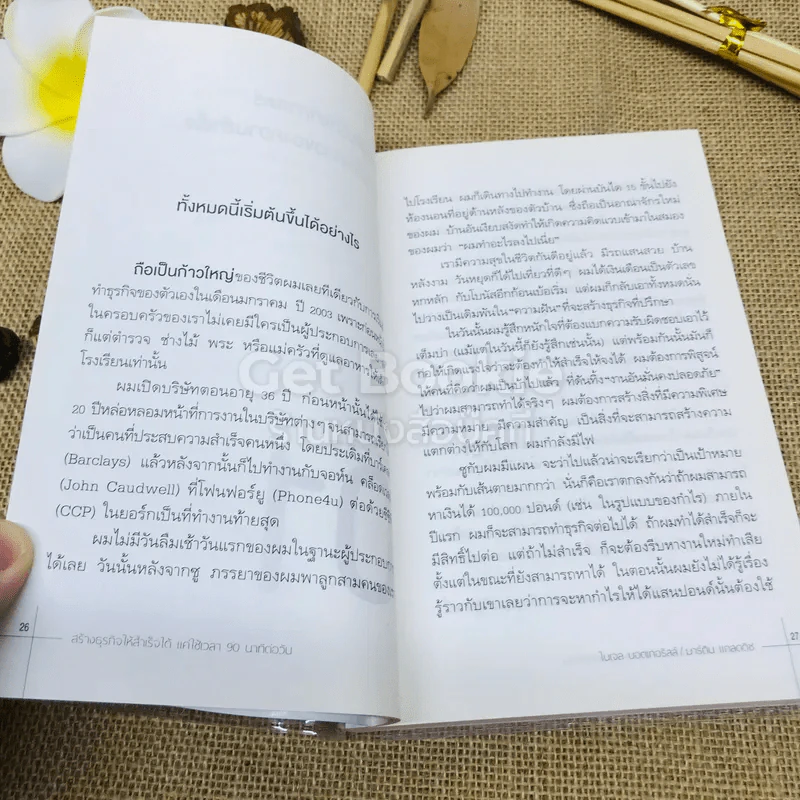 ทั้งหมดนี้เริ่มต้นขึ้นได้อย่างไร
ถือเป็นก้าวใหญ่ของชีวิตผมเลยทีเดียวกับการ
ทำธุรกิจของตัวเองในเดือนมกราคม ปี 2003 เพราะก่อนหน้า
ในครอบครัวของเราไม่เคยมีใครเป็นผู้ประกอบการเลย
ก็แต่ตำรวจ ช่างไม้ พระ หรือแม่ครัวที่ดูแลอาหารให้
โรงเรียนเท่านั้น
ผมเปิดบริษัทตอนอายุ 36 ปี ก่อนหน้านั้นได้ใช้
20 ปีหล่อหลอมหน้าที่การงานในบริษัทต่างๆ จนสามารถ
ว่าเป็นคนที่ประสบความสำเร็จคนหนึ่ง โดยประเดิมที่บาร์เคล
(Barclays) แล้วหลังจากนั้นก็ไปทำงานกับจอห์น คล็อดเวล
(John Caudwell) ที่โฟนฟอร์ยู (Phone4u) ต่อด้วยซีซีพี
(CCP) ในยอร์กเป็นที่ทำงานท้ายสุด
ผมไม่มีวันลืมเช้าวันแรกของผมในฐานะผู้ประกอบการ
ได้เลย วันนั้นหลังจากซู ภรรยาของผมพาลูกสามคนของเรา
26
สร้างธุรกิจให้สำเร็จได้ แค่ใช้เวลา 90 นาทีต่อวัน
ไปโรงเรียน ผมก็เดินทางไปทำงาน โดยผ่านบันได 15 ขั้นไปยัง
ห้องนอนที่อยู่ด้านหลังของตัวบ้าน ซึ่งถือเป็นอาณาจักรใหม่
ของผม บ้านอันเงียบสงัดทำให้เกิดความคิดแวบเข้ามาในสมอง
ของผมว่า "ผมทำอะไรลงไปเนี่ย"
เรามีความสุขในชีวิตกันดีอยู่แล้ว มีรถแสนสวย บ้าน
หลังงาม วันหยุดก็ได้ไปเที่ยวที่ดีๆ ผมได้เงินเดือนเป็นตัวเลข
หกหลัก กับโบนัสอีกก้อนเบ้อเริ่ม แต่ผมก็กลับเอาทั้งหมดนั้น
ไปวางเป็นเดิมพันใน"ความฝัน"ที่จะสร้างธุรกิจที่ปรึกษา
ในวันนั้นผมรู้สึกหนักใจที่ต้องแบกความรับผิดชอบเอาไว้
เต็มบ่า (แม้แต่ในวันนี้ก็ยังรู้สึกเช่นนั้น) แต่พร้อมกันนั้นมันก็
ก่อให้เกิดแรงใจว่าจะต้องทำให้สำเร็จให้จงได้ ผมต้องการพิสูจน์
ให้คนที่คิดว่าผมเป็นบ้าไปแล้ว ที่ดันทิ้ง"งานอันมั่นคงปลอดภัย"
ไปว่าผมสามารถทำได้จริงๆ ผมต้องการสร้างสิ่งที่มีความพิเศษ
มีความหมาย มีความสำคัญ เป็นสิ่งที่จะสามารถสร้างความ
แตกต่างให้กับโลก ผมกำลังมีไฟ
ซูกับผมมีแผน จะว่าไปแล้วน่าจะเรียกว่าเป็นเป้าหมาย
พร้อมกับเส้นตายมากกว่า นั่นก็คือเราตกลงกันว่าถ้าผมสามารถ
หาเงินได้ 100,000 ปอนด์ (เช่น ในรูปแบบของกำไร) ภายใน
ปีแรก ผมก็จะสามารถทำธุรกิจต่อไปได้ ถ้าผมทำได้สำเร็จก็จะ
มีสิทธิ์ไปต่อ แต่ถ้าไม่สำเร็จ ก็จะต้องรีบหางานใหม่ทำเสีย
ตั้งแต่ในขณะที่ยังสามารถหาได้ ในตอนนั้นผมยังไม่ได้รู้เรื่อง
รู้ราวกับเขาเลยว่าการจะหากำไรให้ได้แสนปอนด์นั้นต้องใช้
27
ไนเจล บอตเทอริลล์ / มาร์ติน แกลดดิช
Get Bookie
ร้านหนังสือมือที่